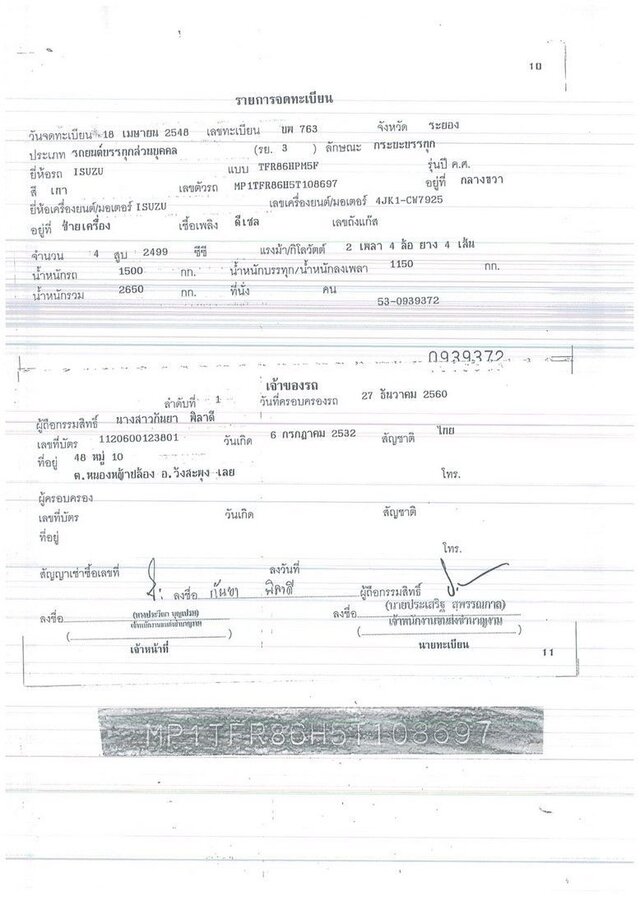 10
รายการจดทะเบียน
วันจดทะเบียน 18 เมษายน 2548 เลขทะเบียน บพ 763 จังหวัด ระยอง
ประเภท รถยนต์บรรทุกส่วนบุคคล (รย. 3 ) ลักษณะ กระบะบรรทุก
ยี่ห้อรถ ISUZU แบบ TFR86HPM5F รุ่นปี ค.ศ.
สี เทา เลขตัวรถ MP1TFR86H5T108697 อยู่ที่ กลางขวา
ยี่ห้อเครื่องยนต์/มอเตอร์ ISUZU เลขเครื่องยนต์/มอเตอร์ 4JK1-CW7925
อยู่ที่ ซ้ายเครื่อง เชื้อเพลิง ดีเซล เลขถังแก๊ส
จำนวน 4 สูบ 2499 ซีซี แรงม้า/กิโลวัตต์ 2 เพลา 4 ล้อ ยาง 4 เส้น
น้ำหนักรถ 1500 กก. น้ำหนักบรรทุก/น้ำหนักลงเพลา 1150 กก.
น้ำหนักรวม 2650 กก. ที่นั่ง คน
53-0939372
0939372
เจ้าของรถ
ลำดับที่ 1 วันที่ครอบครองรถ 27 ธันวาคม 2560
ผู้ถือกรรมสิทธิ์ นางสาวกันยา พิลาดี
เลขที่บัตร 1120600123801 วันเกิด 6 กรกฎาคม 2532 สัญชาติ ไทย
ที่อยู่ 48 หมู่ 10
ต.หนองหญ้าปล้อง อ.วังสะพุง เลย โทร.
ผู้ครอบครอง
เลขที่บัตร วันเกิด สัญชาติ
ที่อยู่
โทร.
สัญญาเช่าซื้อเลขที่ ลงวันที่
ลงชื่อ กันยา พิลาดี ผู้ถือกรรมสิทธิ์
ลงชื่อ ลงชื่อ (นายประเสริฐ สุพรรณกาล)
เจ้าพนักงานขนส่งชำนาญงาน เจ้าพนักงานขนส่งชำนาญงาน
( ) ( )
เจ้าหน้าที่ นายทะเบียน
11
MP1TFR86H5T108697